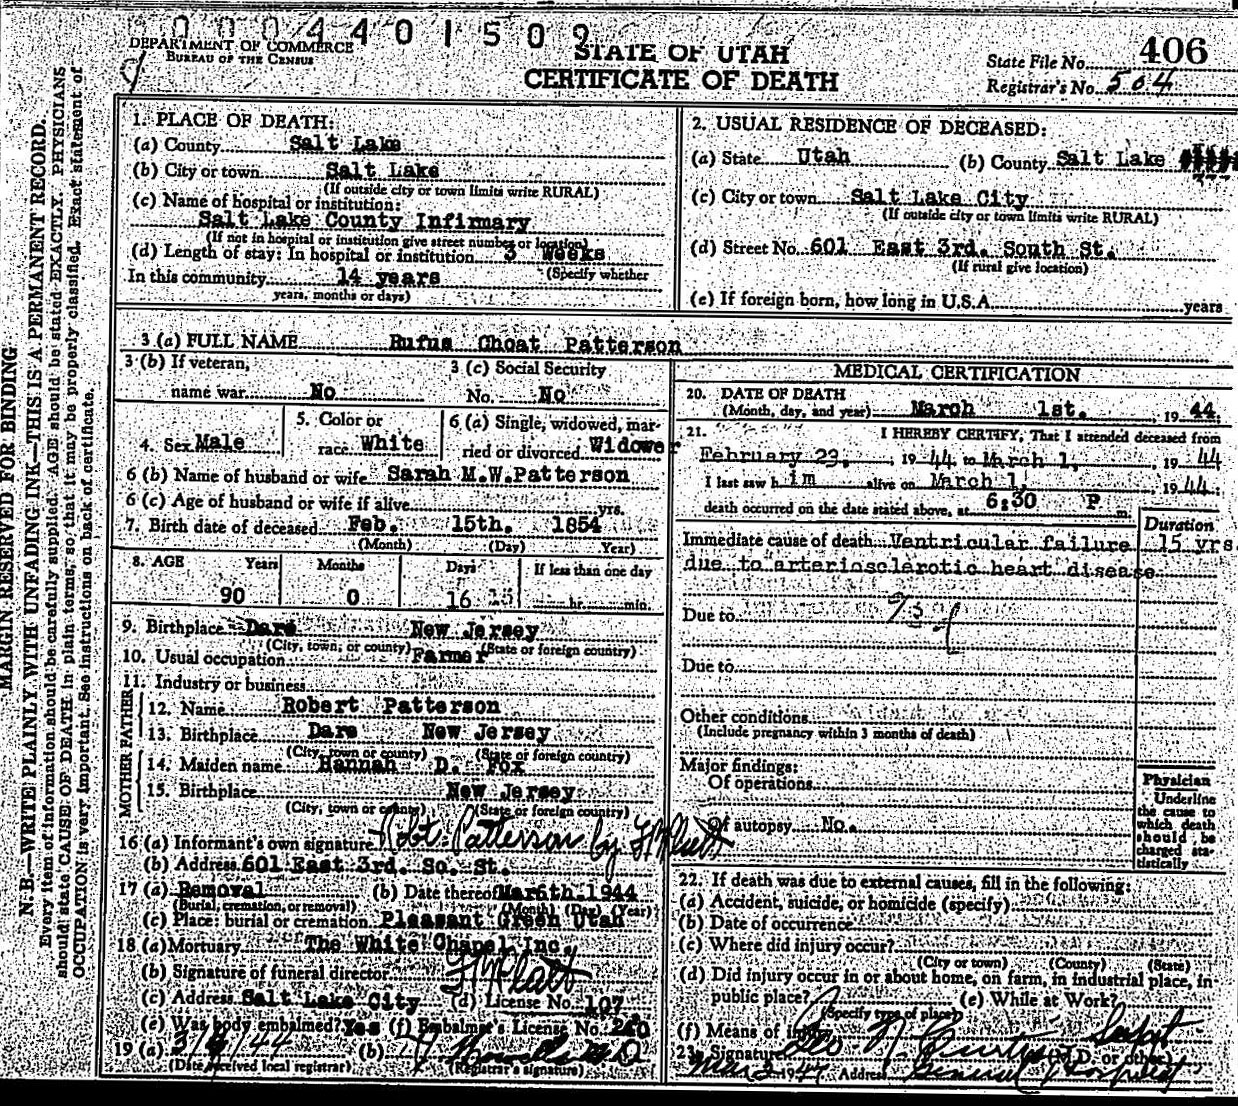 0004401509
DEPARTMENT OF COMMERCE
BUREAU OF THE CENSUS
STATE OF UTAH
CERTIFICATE OF DEATH
State File No. 406
Registrar's No. 504
MARGIN RESERVED FOR BINDING
N. B.—WRITE PLAINLY WITH UNFADING INK—THIS IS A PERMANENT RECORD.
Every item of information should be carefully supplied. AGE should be stated EXACTLY. PHYSICIANS
should state CAUSE OF DEATH in plain terms, so that it may be properly classified. Exact statement of
OCCUPATION is very important. See instructions on back of certificate.
1. PLACE OF DEATH:
(a) County Salt Lake
(b) City or town Salt Lake
(If outside city or town limits write RURAL)
(c) Name of hospital or institution:
Salt Lake County Infirmary
(If not in hospital or institution give street number or location)
(d) Length of stay: In hospital or institution 3 Weeks
(Specify whether
In this community 14 years
years, months or days)
2. USUAL RESIDENCE OF DECEASED:
(a) State Utah (b) County Salt Lake
(c) City or town Salt Lake City
(If outside city or town limits write RURAL)
(d) Street No. 601 East 3rd. South St.
(If rural give location)
(e) If foreign born, how long in U.S.A. years
3 (a) FULL NAME Rufus Choat Patterson
3 (b) If veteran,
name war No
3 (c) Social Security
No. No
4. Sex Male
5. Color or
race White
6 (a) Single, widowed, mar-
ried or divorced Widower
6 (b) Name of husband or wife Sarah M.W. Patterson
6 (c) Age of husband or wife if alive yrs.
7. Birth date of deceased Feb. 15th. 1854
(Month) (Day) Year)
8. AGE Years Months Days If less than one day
90 0 16 hr. min.
9. Birthplace Dare New Jersey
(City, town, or county) (State or foreign country)
10. Usual occupation Farmer
11. Industry or business
FATHER
12. Name Robert Patterson
13. Birthplace Dare New Jersey
(City, town or county) (State or foreign country)
MOTHER
14. Maiden name Hannah D. Fox
15. Birthplace New Jersey
(City, town or county) (State or foreign country)
16 (a) Informant's own signature Robt. Patterson by F M Platt
(b) Address 601 East 3rd. So. St.
17 (a) Removal (b) Date thereof Mar 6th. 1944
(Burial, cremation, or removal) (Month) (Day) (Year)
(c) Place: burial or cremation Pleasant Green Utah
18 (a) Mortuary The White Chapel Inc.
(b) Signature of funeral director F M Platt
(c) Address Salt Lake City (d) License No. 107.
(e) Was body embalmed? Yes (f) Embalmer's License No. 260
19 (a) 3/6/44 (b)
(Date received local registrar) (Registrar's signature)
MEDICAL CERTIFICATION
20. DATE OF DEATH
(Month, day, and year) March 1st. , 19 44
21. I HEREBY CERTIFY, That I attended deceased from
February 29, , 19 44 to March 1, , 19 44
I last saw h im alive on March 1, , 19 44;
death occurred on the date stated above, at 6:30 P m.
Duration
Immediate cause of death Ventricular failure 15 yrs.
due to arteriosclerotic heart disease
Due to
Due to
Other conditions
(Include pregnancy within 3 months of death)
Major findings:
Of operations
Of autopsy No.
Physician
Underline
the cause to
which death
should be
charged sta-
tistically
22. If death was due to external causes, fill in the following:
(a) Accident, suicide, or homicide (specify)
(b) Date of occurrence
(c) Where did injury occur?
(City or town) (County) (State)
(d) Did injury occur in or about home, on farm, in industrial place, in
public place? (e) While at Work?
(Specify type of place)
(f) Means of injury
23. Signature Geo N. Curtis (M.D. or other)
Mar 3 1944 Address General Hospital